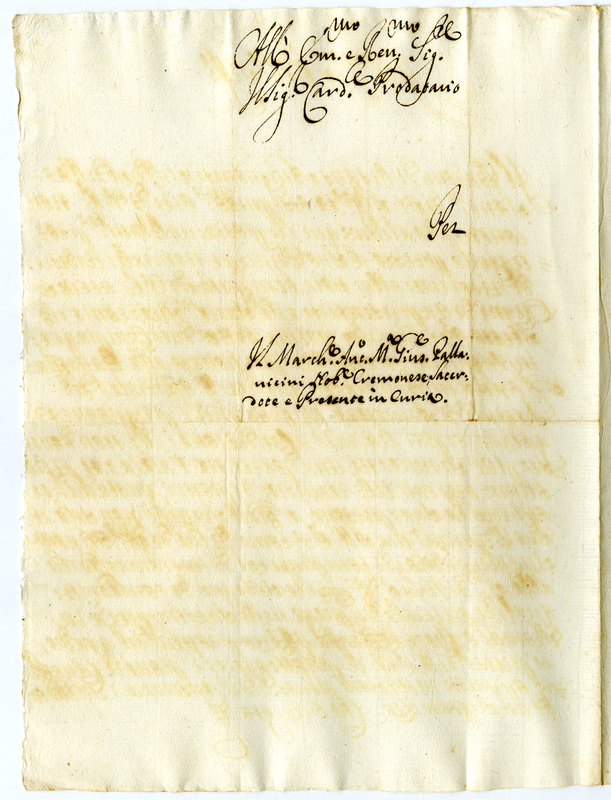 All' Em.mo e Rev.mo Sig.re
Il Sig.r Card.le Prodatario
Per
Il March.e Ant.o M.a Gius.e Palla-
vicini Nob.e Cremonese Sacer-
dote e Presente in Curia.